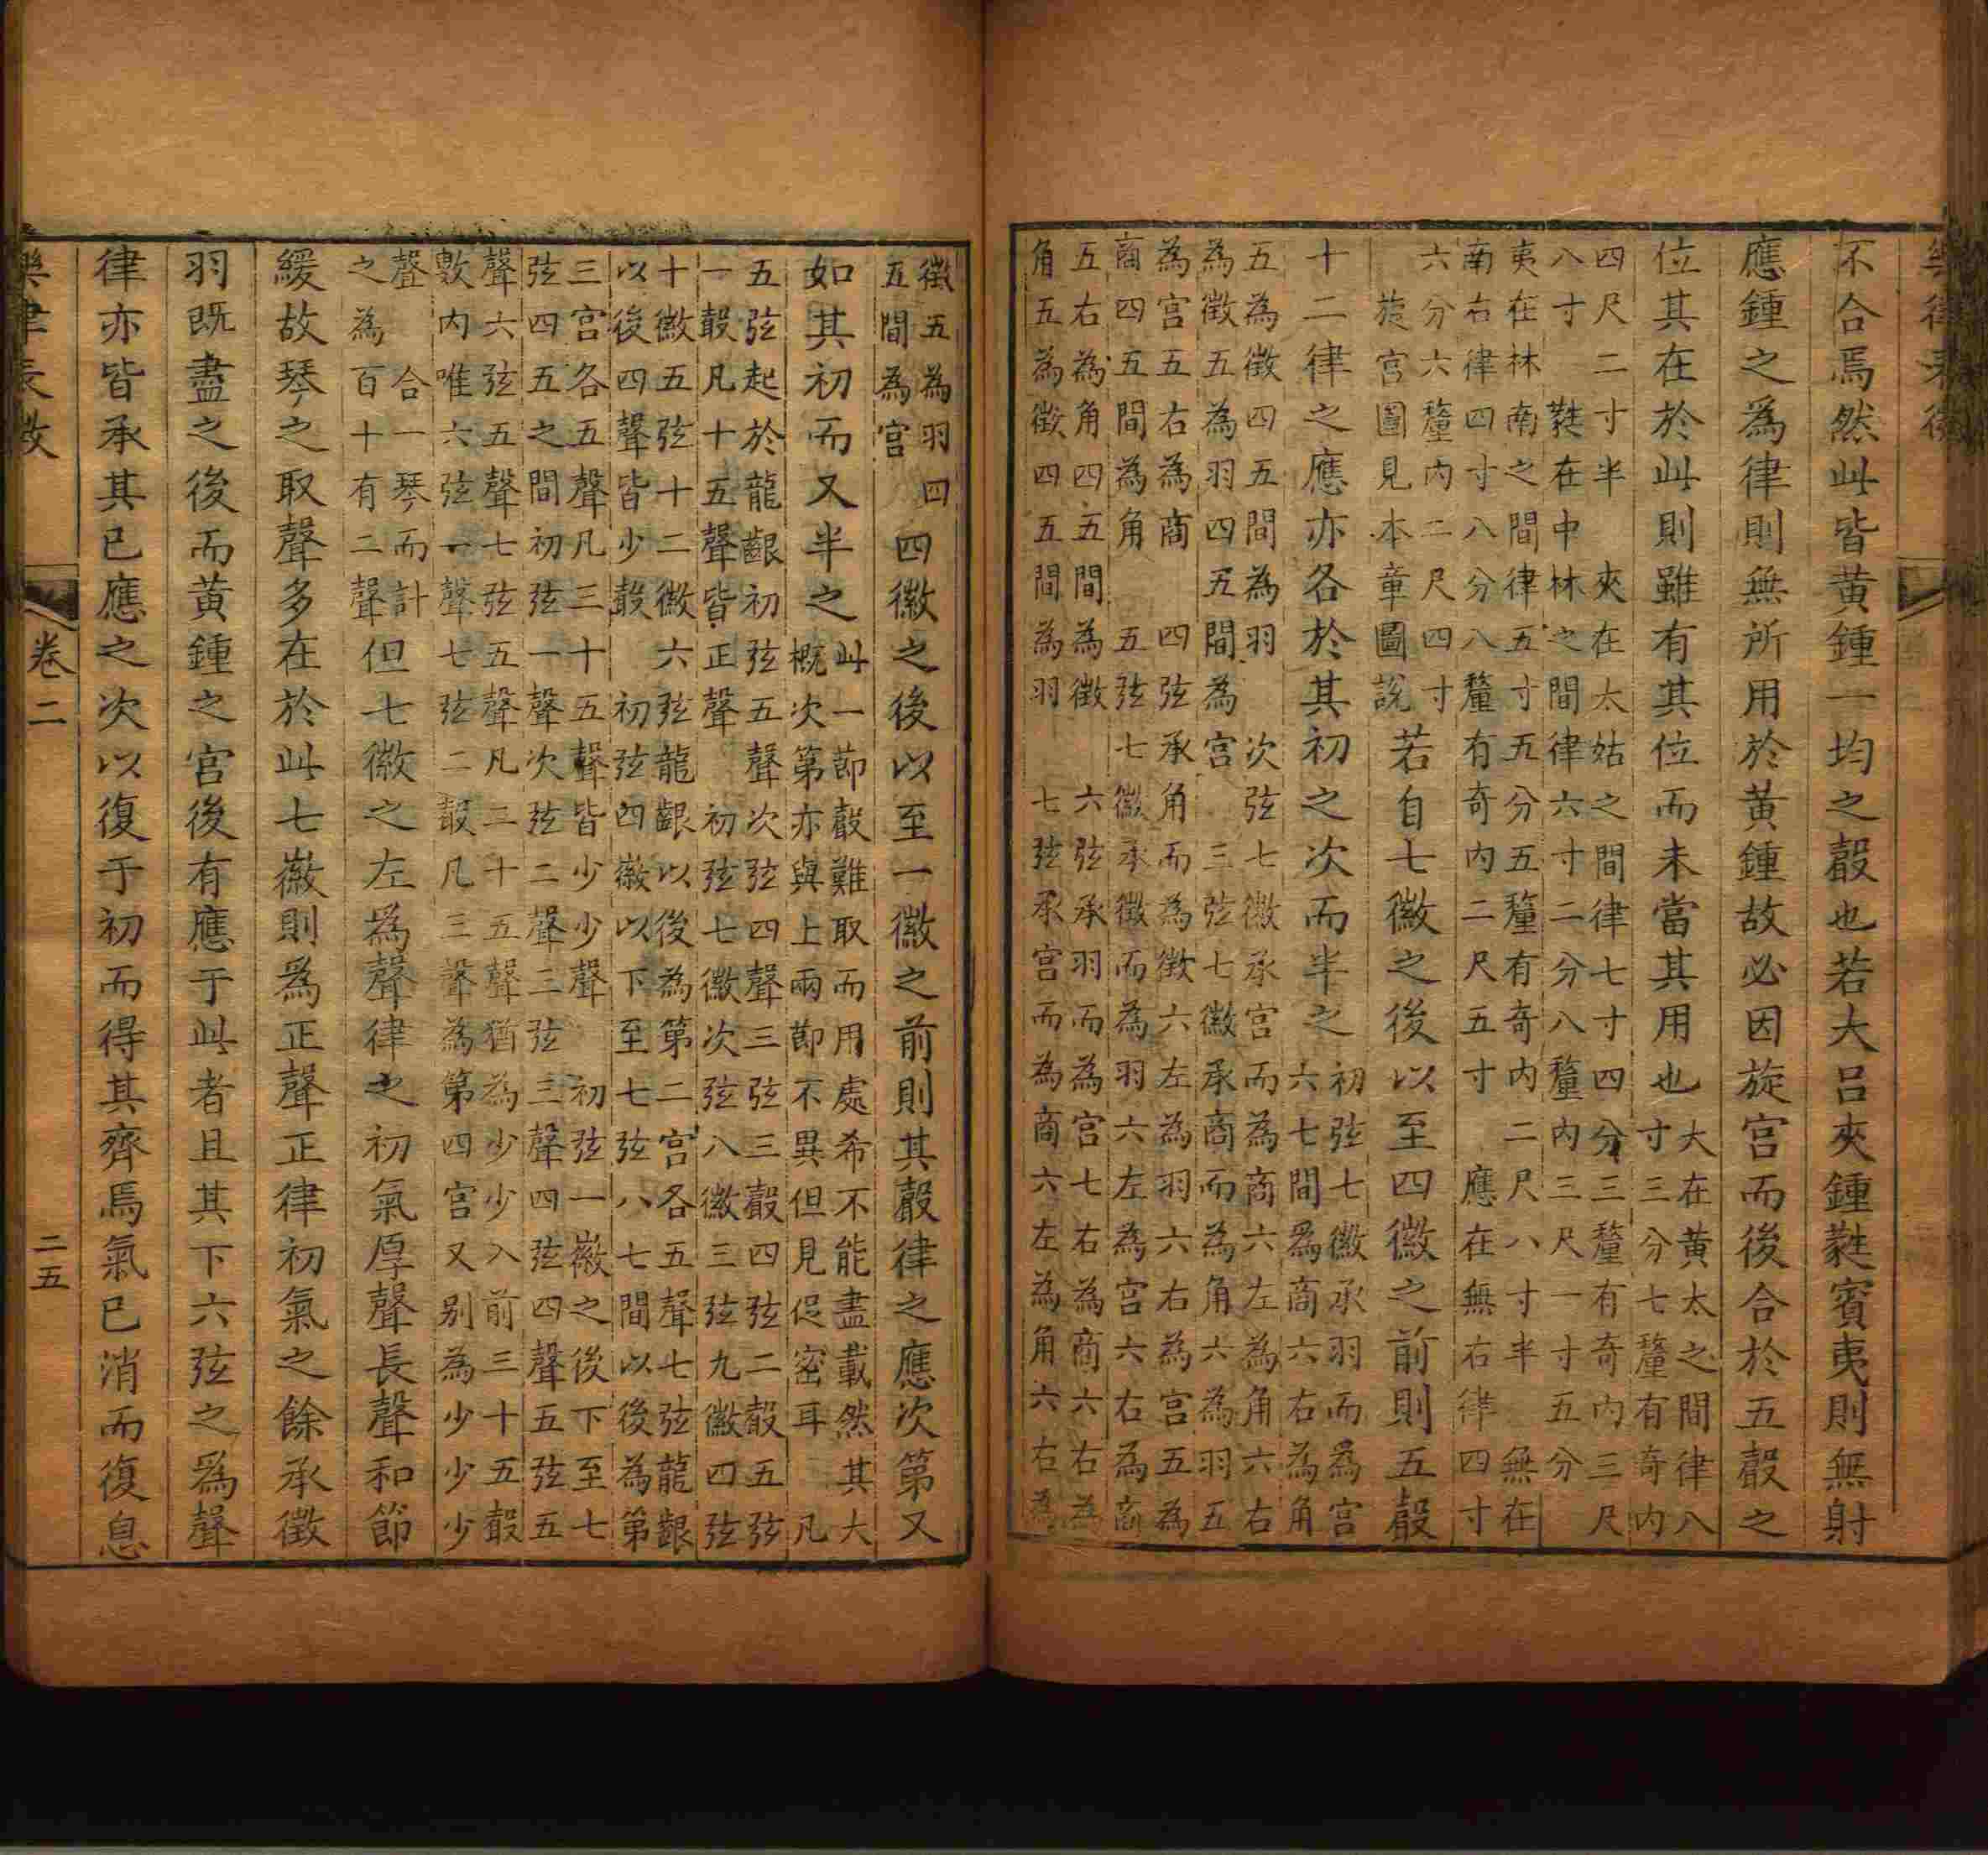 樂律表微
不合焉然此皆黃鍾一均之聲也若大呂夾鍾蕤賓夷則無射
應鍾之為律則無所用於黃鍾故必因旋宮而後合於五聲之
位其在於此則雖有其位而未當其用也
大在黃太之間律八
寸三分七釐有奇內
四尺二寸半 夾在太姑之間律七寸四分三釐有奇內三尺
八寸 蕤在中林之間律六寸二分八釐內三尺一寸五分
夷在林南之間律五寸五分五釐有奇內二尺八寸半 無在
南右律四寸八分八釐有奇內二尺五寸 應在無右律四寸
六分六釐內二尺四寸
旋宮圖見本章圖說
若自七徽之後以至四徽之前則五聲
十二律之應亦各於其初之次而半之
初弦七徽承羽而為宮
六七間為商六右為角
五為徵四五間為羽 次弦七徽承宮而為商六左為角六右
為徵五為羽四五間為宮 三弦七徽承商而為角六為羽五
為宮五右為商 四弦承角而為徵六左為羽六右為宮五為
商四五間為角 五弦七徽承徵而為羽六左為宮六右為商
五右為角四五間為徵 六弦承羽而為宮七右為商六右為
角五為徵四五間為羽 七弦承宮而為商六左為角六右為
徵五為羽四
五間為宮
四徽之後以至一徽之前則其聲律之應次第又
如其初而又半之
此一節聲難取而用處希不能盡載然其大
概次第亦與上兩節不異但見促密耳 凡
五弦起於龍齦初弦五聲次弦四聲三弦三聲四弦二聲五弦
一聲凡十五聲皆正聲 初弦七徽次弦八徽三弦九徽四弦
十徽五弦十二徽六弦龍齦以後為第二宮各五聲七弦龍齦
以後四聲皆少聲 初弦四徽以下至七弦八七間以後為第
三宮各五聲凡三十五聲皆少少聲 初弦一徽之後下至七
弦四五之間初弦一聲次弦二聲三弦三聲四弦四聲五弦五
聲六弦五聲七弦五聲凡二十五聲猶為少少入前三十五聲
數內唯六弦一聲七弦二聲凡三聲為第四宮又別為少少少
聲 合一琴而計
之為百十有二聲
但七徽之左為聲律之初氣厚聲長聲和節
緩故琴之取聲多在於此七徽則為正聲正律初氣之餘承徵
羽既盡之後而黃鍾之宮後有應于此者且其下六弦之為聲
律亦皆承其已應之次以復于初而得其齊焉氣已消而復息
樂律表微 卷二 二五